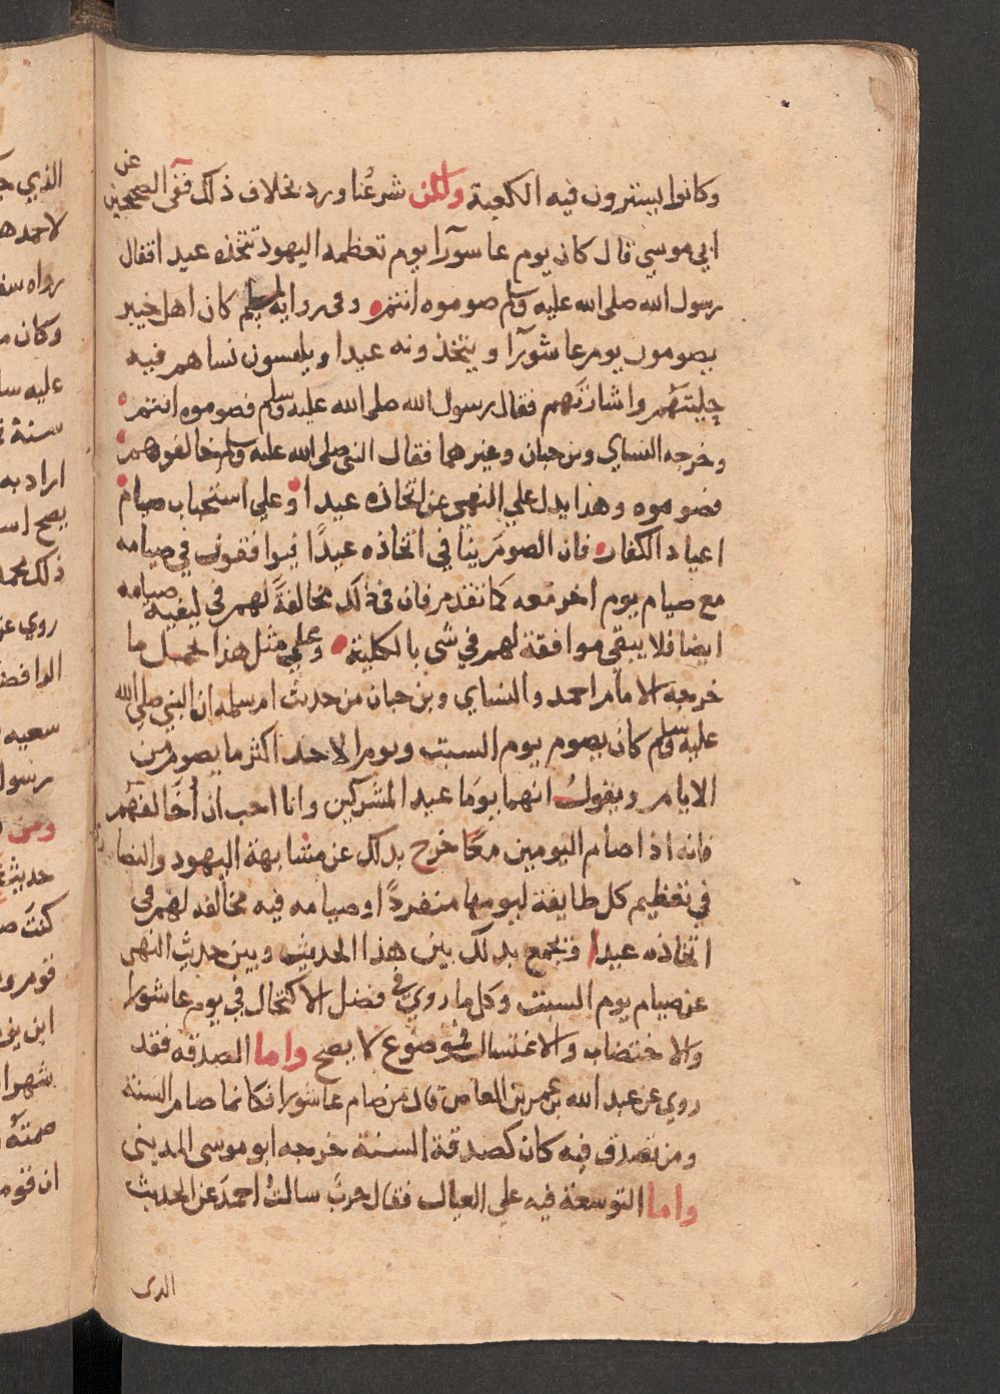 وكانوا يسترون فيه الكعبة ولكن شرعُنا ورد بخلاف ذلك ففى الصحيحين عن
ابي موسي قال كان يوم عاسورآ يوم تعظمه اليهود تتخذه عيد افقال
رسول الله صلى الله عليه وسلم صوموه انتم وفى رواية لمسلم كان اهل خيبر
يصومون يوم عاشورآ ويتخذونه عيدا ويلبسون نساهم فيه
حليتهم واشارتهم فقال رسول الله صلى الله عليه وسلم فصوموه انتم
وخرجه النساي وبن حبان وغيرهما فقال النبي صلى الله عليه وسلم خالفوهم
فصوموه وهذا يدل علي النهى عن اتخاذه عيدا وعلي استحباب صيام
اعياد الكفار فان الصوم ينافي اتخاذه عيدًا فيوافقون في صيامه
مع صيام يوم اخر معه كما تقدم فان فى ذلك مخالفةً لهم في كيفية صيامه
ايضا فلا يبقى موافقة لهم في شى بالكلية وعلي مثل هذا يحمل ما
خرجه الامام احمد والنساي وبن حبان من حديث ام سلمه ان النبي صلي الله
عليه وسلم كان يصوم يوم السبت ويوم الاحد اكثر ما يصوم من
الايام ويقول انهما يومَا عيد المشركين وانا احب ان أخالفهم
فانه اذا صام اليومين معًا خرج بذلك عن مشابهة اليهود والنصارى
في تعظيم كل طايفة ليومها منفردًا وصيامه فيه مخالفه لهم في
اتخاذه عيدا فيجمع بذلك بين هذا الحديث وبين حديث النهى
عن صيام يوم السبت وكل ما روي في فضل الاكتحال في يوم عاشورا
والاختضاب والاغتسال فموضوع لا يصح واما الصدقه فقد
روي عن عبد الله بن عمر بن العاص قال من صام عاشورا فكانما صام السنة
ومن تصدق فيه كان كصدقة السنة خرجه ابو موسى المديني
واما التوسعة فيه علي العيال فقال حربٌ سالتُ احمدَ عن الحديث
الدى